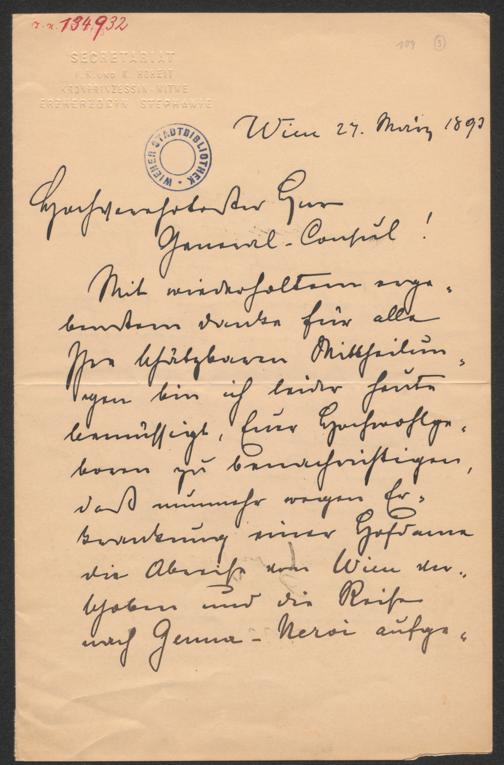 J. N. 134.932
109 3
SECRETARIAT
I. K. UND K. HOHEIT
KRONPRINZESSIN-WITWE
ERZHERZOGIN STEPHANIE
WIENER STADTBIBLIOTHEK
Wien 27. März 1893
Hochverehrtester Herr
General-Consul!
Mit wiederholtem erge-
benstem Danke für alle
Ihre schätzbaren Mittheilun-
gen bin ich leider heute
bemüssigt, Euer Hochwohlge-
boren zu benachrichtigen,
daß nunmehr wegen Er-
krankung einer Hofdame
die Abreise von Wien ver-
schoben und die Reise
nach Genua-Nervi aufge-